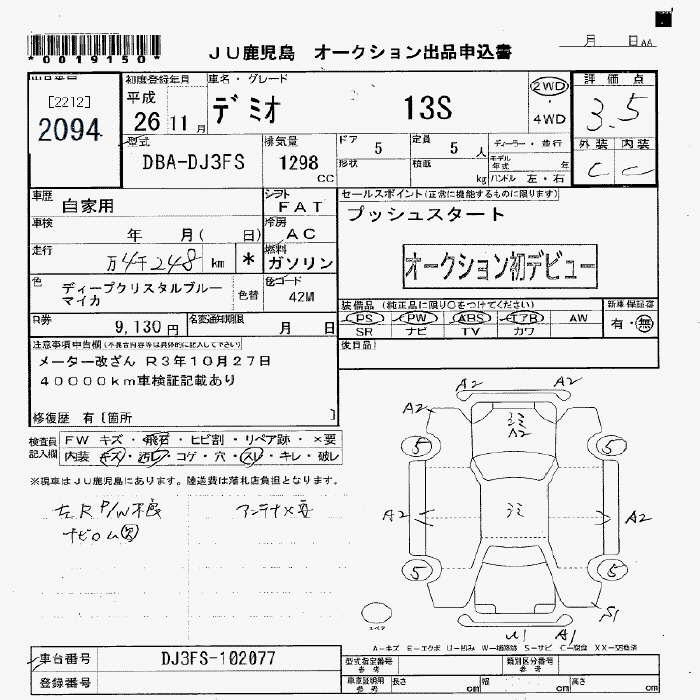 月 日 AA
*0019150*
JU鹿児島 オークション出品申込書
[2212]
2094
初度登録年月
平成
26 11 月
車名・グレード
デミオ 13S
2WD
4WD
評価点
3.5
外装 内装
C C
型式
DBA-DJ3FS
排気量
1298
cc
ドア 5
定員 5 人
形状
積載 kg
ディーラー・並行
モデル年式 年
ハンドル 左・右
車歴
自家用
シフト
FAT
セールスポイント(正常に機能するものに限ります)
プッシュスタート
車検
年 月( 日)
冷房
AC
走行
万4千248 km *
燃料
ガソリン
オークション初デビュー
色
ディープクリスタルブルー
マイカ
色替
色コード
42M
装備品(純正品に限り○をつけてください)
PS PW ABS エアB AW
SR ナビ TV カワ
新車保証書
有・無
R券
9,130円
名変通知期限
月 日
後日品
注意事項申告欄(不具合内容等は具体的に記入して下さい)
メーター改ざん R3年10月27日
40000km車検証記載あり
修復歴 有〔箇所 〕
検査員
記入欄
FW キズ・飛石・ヒビ割・リペア跡・×要
内装 キズ・汚レ・コゲ・穴・スレ・キレ・破レ
※現車はJU鹿児島にあります。陸送費は落札店負担となります。
左R P/W不良
アンテナ×要
A2 A2
A2
ミミ
A2
5 5
A2 ミミ A2
5 5
S1
U1 A1
スペア
A-キズ E-エクボ U-凹み W-補修跡 S-サビ C-腐食 XX-交換済
車台番号
DJ3FS-102077
登録番号
型式指定番号
類別区分番号
車庫証明用
参考
長さ cm
幅 cm
高さ cm